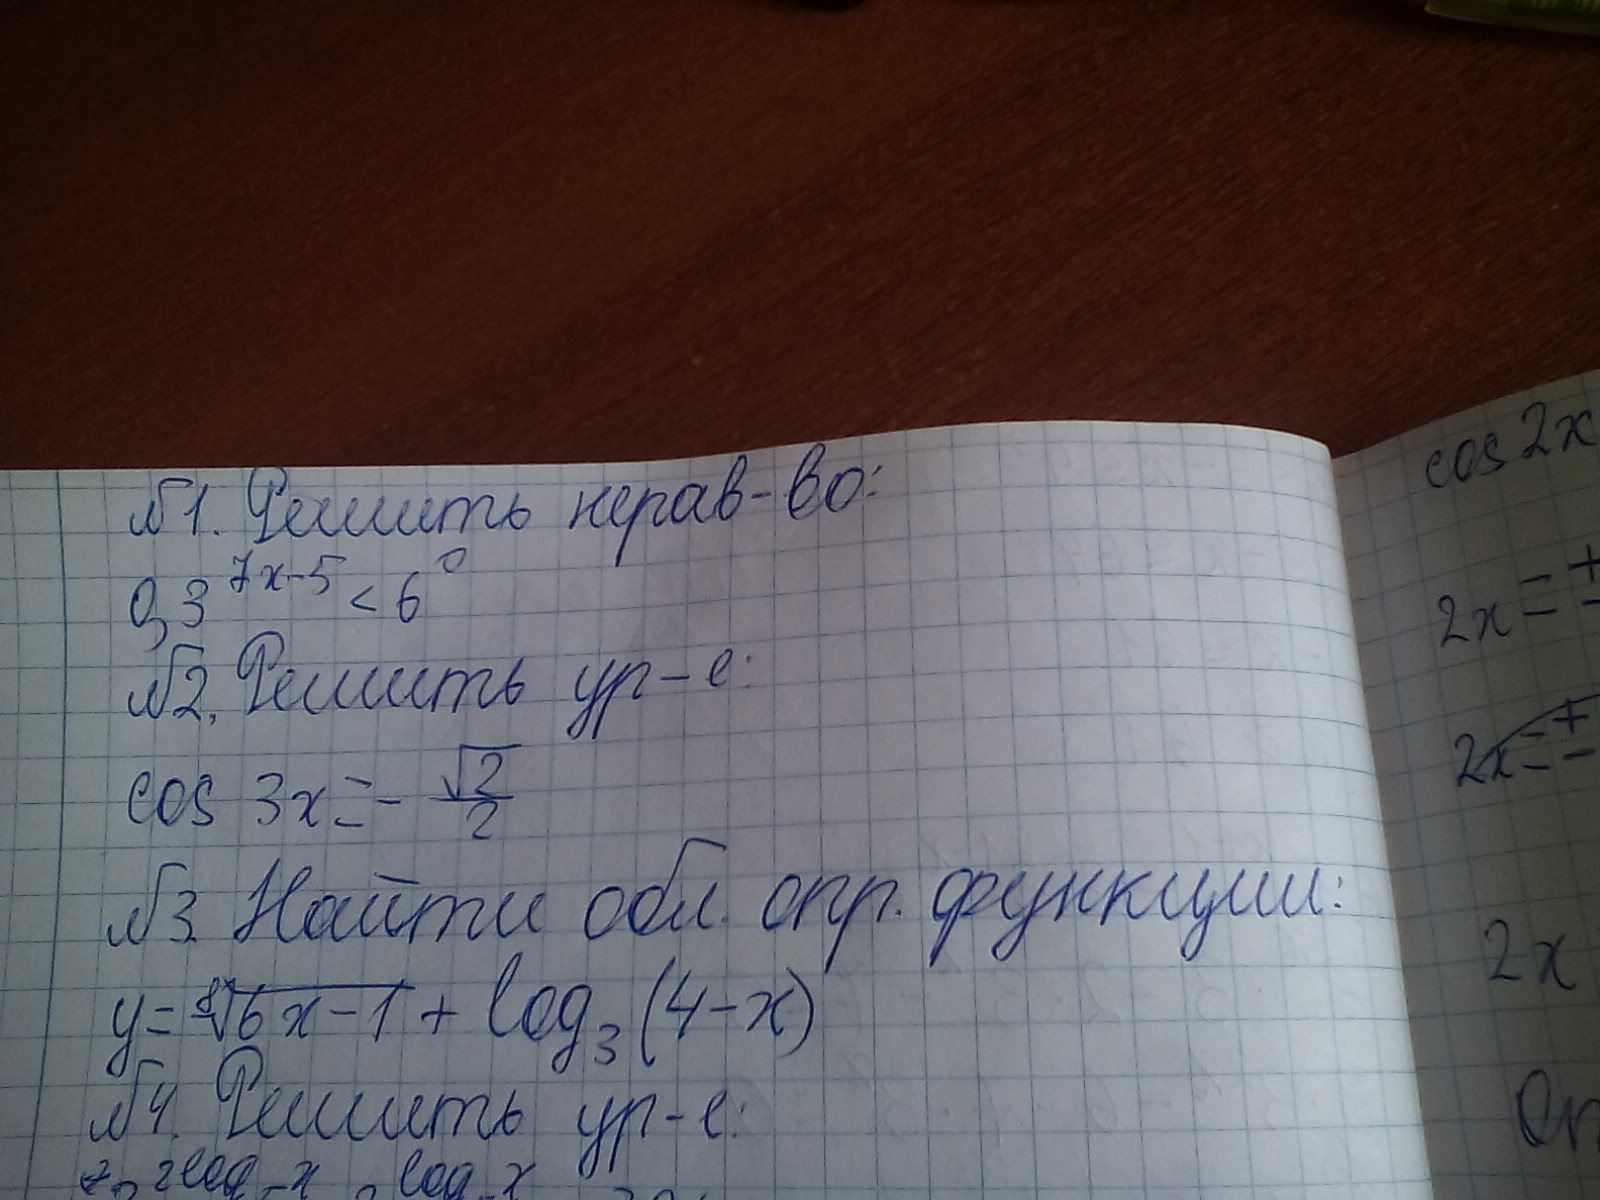 №1. Решить нерав-во:
0,3^{7x-5} < 6^0
№2. Решить ур-е:
cos 3x = - √2/2
№3. Найти обл. опр. функции:
y = ⁸√6x-1 + log₃(4-x)
№4. Решить ур-е:
cos 2x
2x = ±
2x = ±
2x